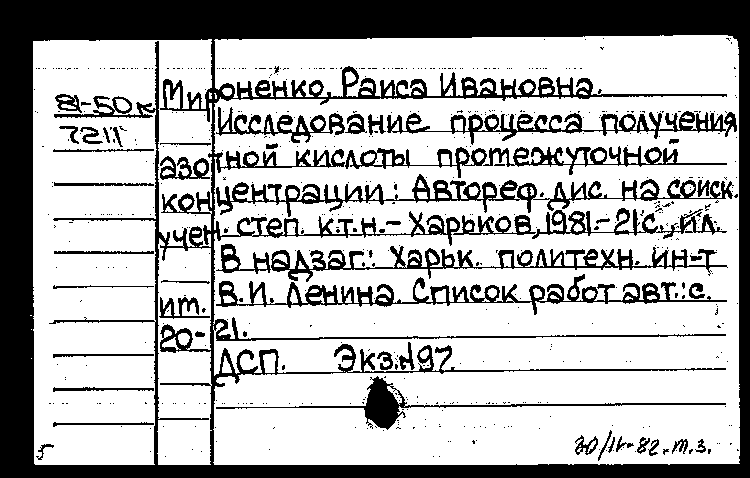 Мироненко, Раиса Ивановна.
81-50к
7211
Исследование процесса получения
азотной кислоты протежуточной
концентрации: Автореф. дис. на соиск.
учен. степ. к.т.н.- Харьков, 1981.-21с., ил.
В надзаг.: Харьк. политехн. ин-т
им. В.И. Ленина. Список работ авт.: с.
20-21.
ДСП. Экз.№97.
5